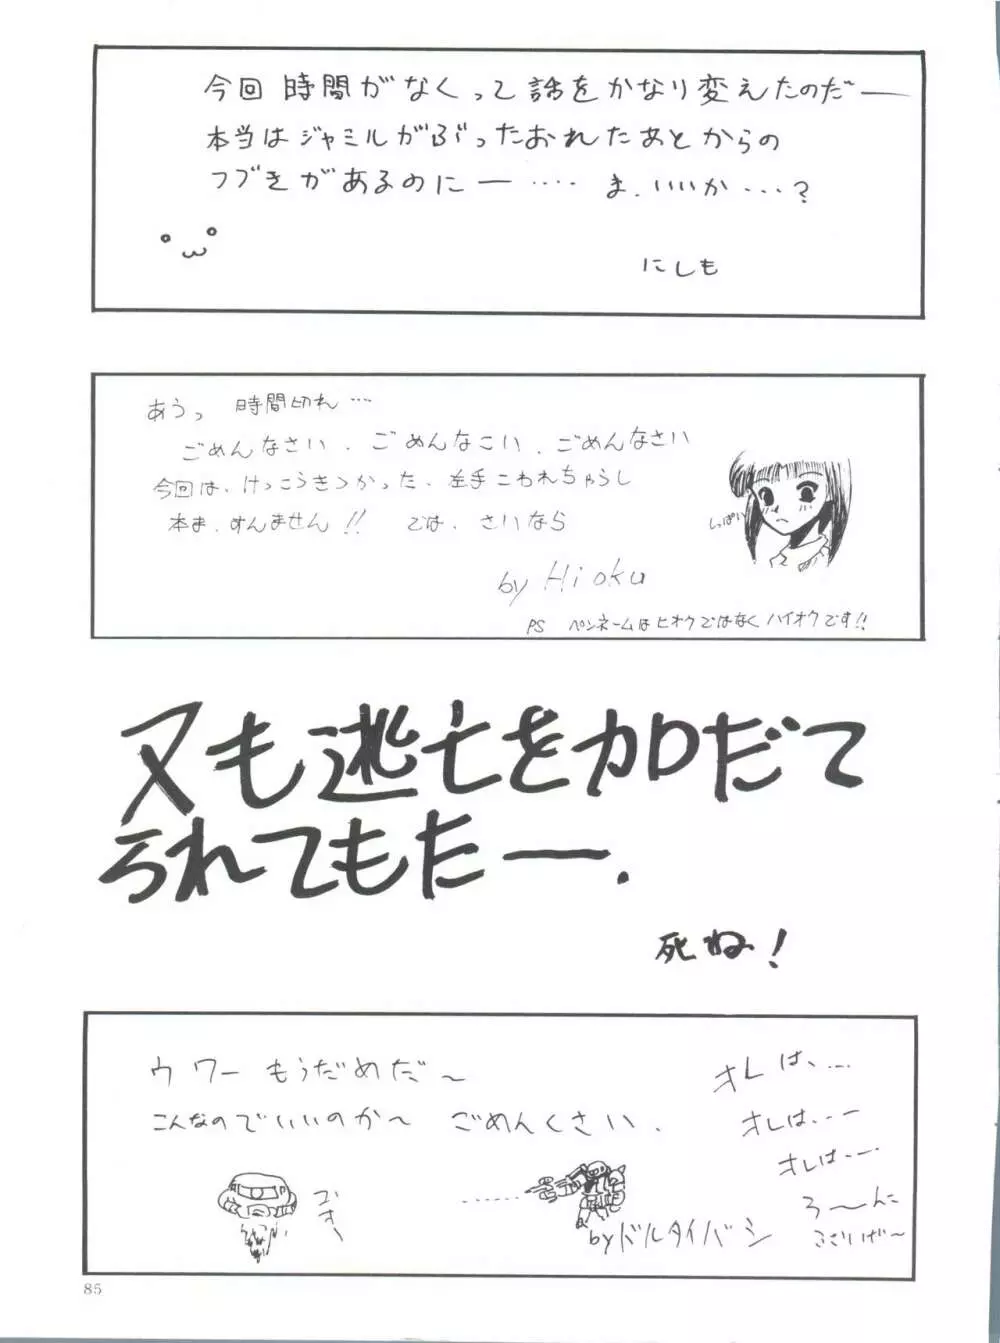 今回 時間がなくって話をかなり変えたのだー
本当はジャミルがぶったおれたあとからの
つづきがあるのにー‥‥ ま、いいか…?
にしも
あうっ 時間切れ…
ごめんなさい、ごめんなこい、ごめんなさい
今回は、けっこうきつかった、左手こわれちゃうし
本ま、すんません!! では、さいなら
しっぱい
by Hioku
PS ペンネームはヒオクではなくハイオクです!!
又も逃亡を加だて
られてもたー.
死ね!
ウワー もうだめだ〜
こんなのでいいのか〜 ごめんくさい.
オレは、…
オレは、‥ー
オレは‥ー
ろ〜んに
by ドルタイバシ
85